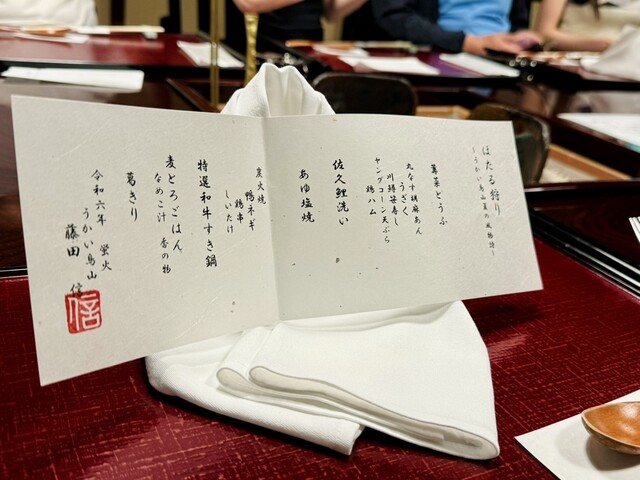 ほたる狩り
～うかい鳥山夏の風物詩～
蓴菜とうふ
丸なす胡麻あん
うざく
川鱒笹寿し
ヤングコーン天ぷら
鶏ハム
佐久鯉洗い
あゆ塩焼
炭火焼
鴨ネギ
鶏串
しいたけ
特選和牛すき鍋
麦とろごはん
なめこ汁 香の物
葛きり
令和六年 蛍火
うかい鳥山
藤田 信
信